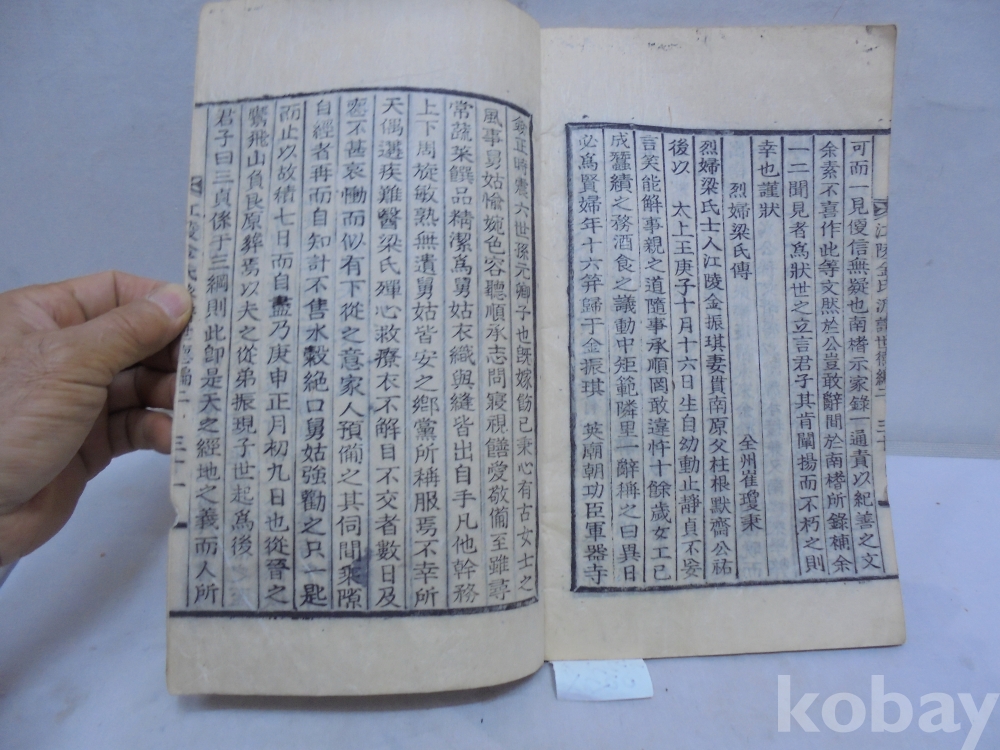 可而一見優信無疑也南楮示家錄一通責以紀善之文
余素不喜作此等文然於公豈敢辭間於南楮所錄補余
一二聞見者爲狀世之立言君子其肯闡揚而不朽之則
幸也謹狀
全州崔瓊秉
烈婦梁氏傳
烈婦梁氏士人江陵金振琪妻貫南原父柱根默齋公祐
後以 太上王庚子十月十六日生自幼動止靜貞不妄
言笑能解事親之道隨事承順罔敢違忤十餘歲女工已
成蠶績之務酒食之議動中矩範隣里一辭稱之曰異日
必爲賢婦年十六笄歸于金振琪 英廟朝功臣軍器寺
僉正時 六世孫元卿子也旣嫁飭已秉心有古女士之
風事舅姑愉婉色容聽順承志問寢視饍愛敬備至雖尋
常蔬菜饌品精潔爲舅姑衣織與縫皆出自手凡他幹務
上下周旋敏熟無遺舅姑皆安之鄕黨所稱服焉不幸所
天偶遘疾難醫梁氏殫心救療衣不解目不交者數日及
窆不甚哀慟而似有下從之意家人預備之其伺間乘隙
自經者再而自知計不售水穀絶口舅姑強勸之只一匙
而止以故積七日而自盡乃庚申正月初九日也從窆之
鷹飛山負艮原葬焉以夫之從弟振現子世起爲後
君子曰三貞係于三綱則此卽是天之經地之義而人所
江陵金氏派譜世德編二 三十
江陵金氏 編二 三十一
kobay